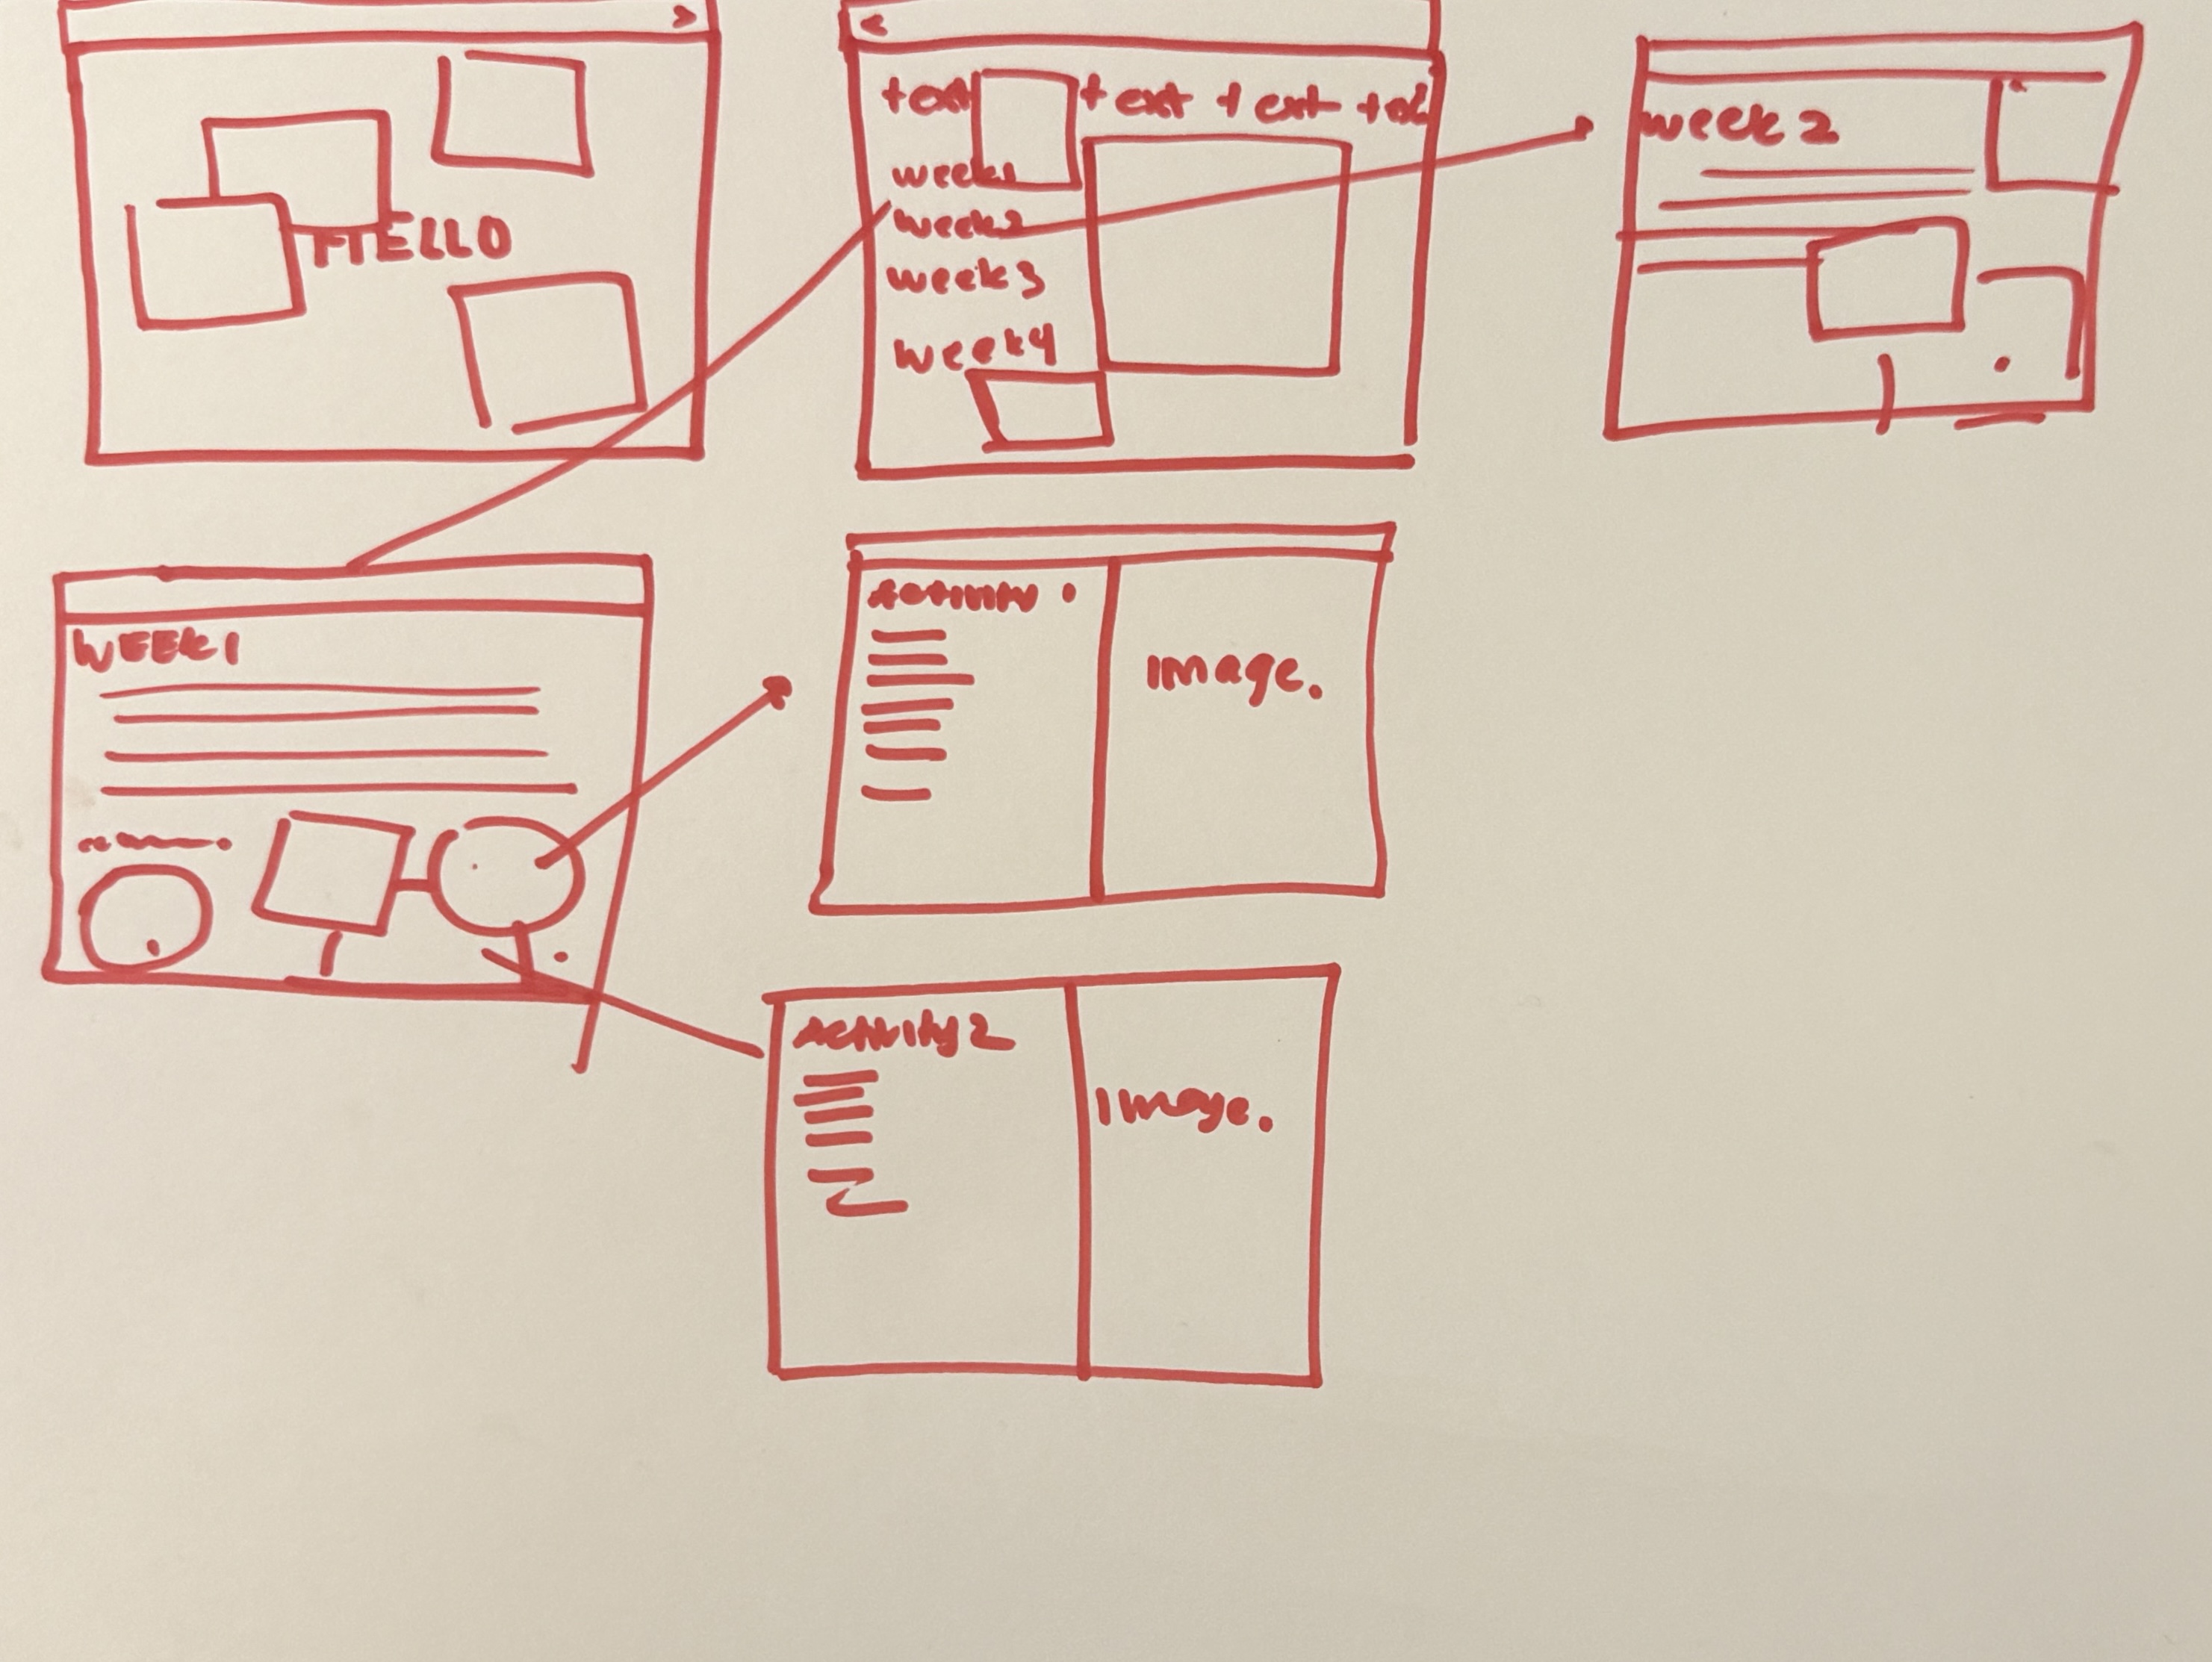 >
HELLO
<
text text text
week1
week2
week3
week4
week 2
WEEK1
Activity
Image.
Activity 2
Image.